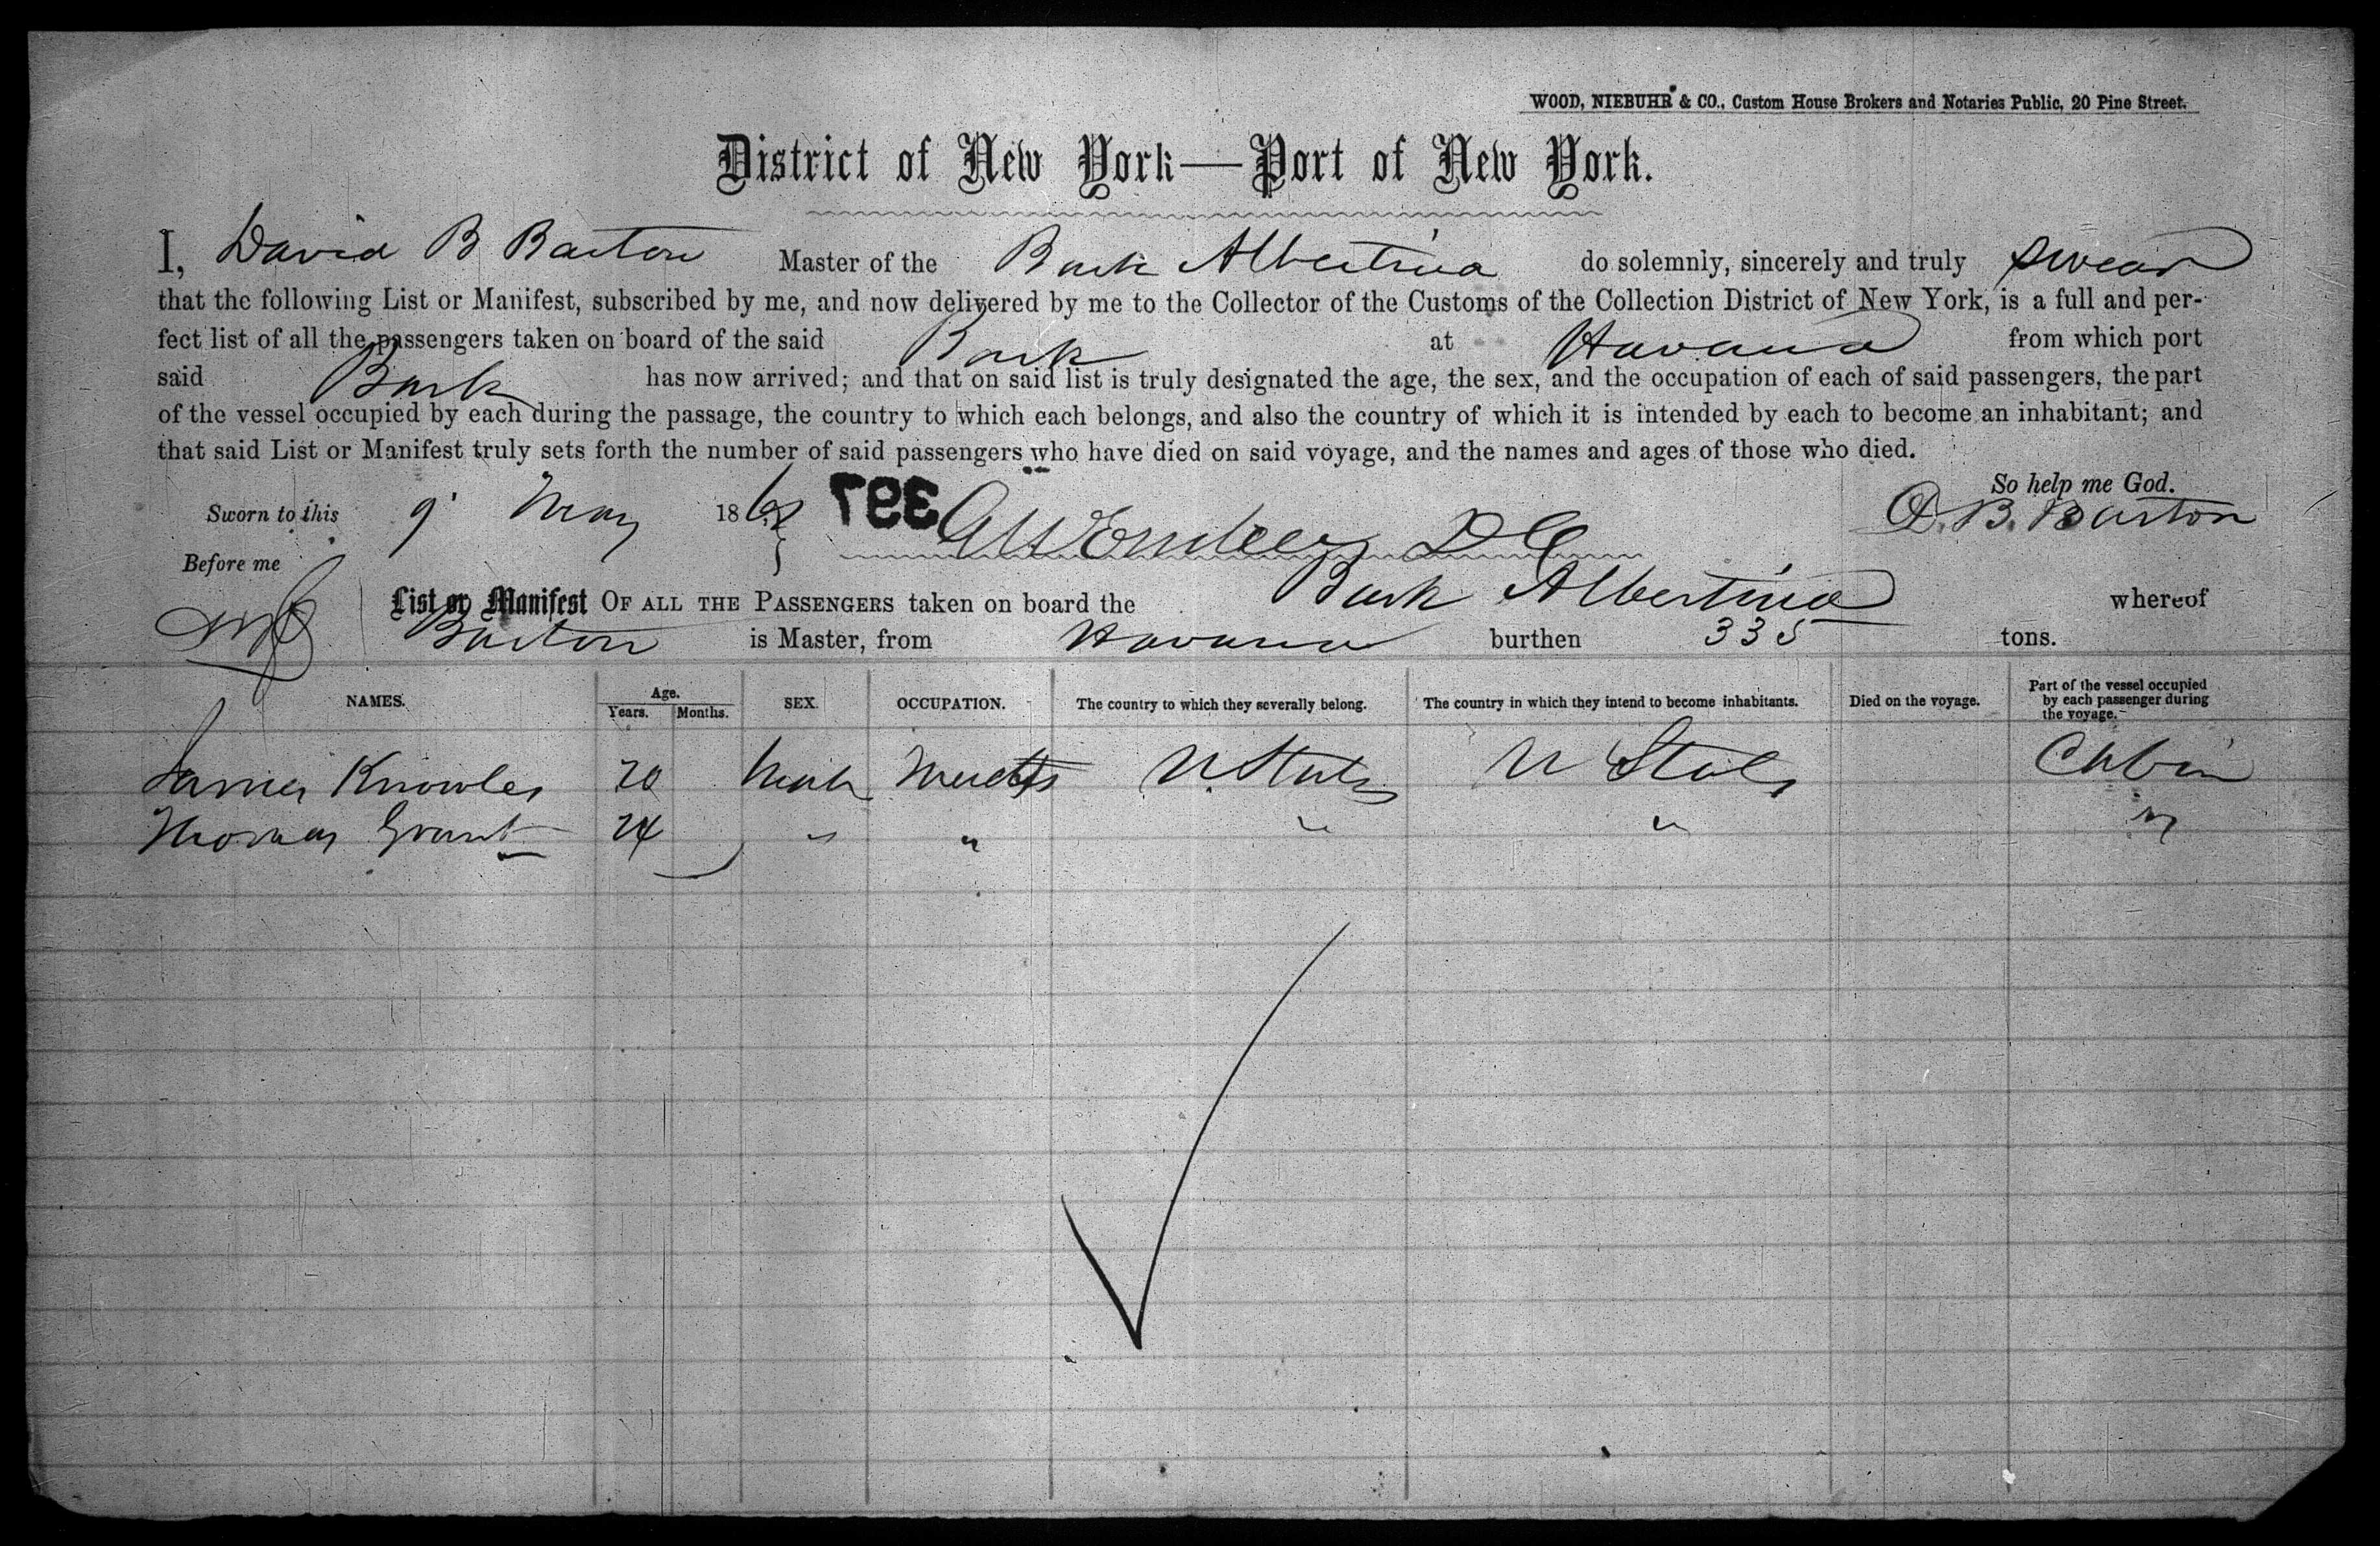 WOOD, NIEBUHR & CO., Custom House Brokers and Notaries Public, 20 Pine Street.
District of New York—Port of New York.
I, David B Barton Master of the Bark Albertina do solemnly, sincerely and truly swear
that the following List or Manifest, subscribed by me, and now delivered by me to the Collector of the Customs of the Collection District of New York, is a full and per-
fect list of all the passengers taken on board of the said Bark at Havana from which port
said Bark has now arrived; and that on said list is truly designated the age, the sex, and the occupation of each of said passengers, the part
of the vessel occupied by each during the passage, the country to which each belongs, and also the country of which it is intended by each to become an inhabitant; and
that said List or Manifest truly sets forth the number of said passengers who have died on said voyage, and the names and ages of those who died.
So help me God.
Sworn to this 9 May 186 397 D. B. Barton
Before me
List or Manifest OF ALL THE PASSENGERS taken on board the Bark Albertina whereof
Barton is Master, from Havana burthen 335 tons.
NAMES. Age. Years. Months. SEX. OCCUPATION. The country to which they severally belong. The country in which they intend to become inhabitants. Died on the voyage. Part of the vessel occupied by each passenger during the voyage.
James Knowles 20 Male U. States U States Cabin
Thomas Grant 24 " " " " "